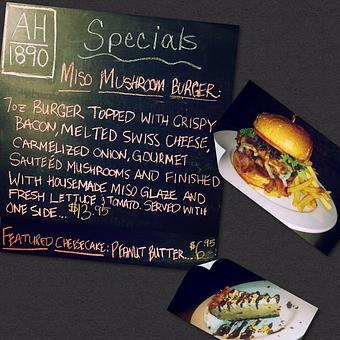 AH
1890
Specials
MISO MUSHROOM BURGER:
7oz BURGER TOPPED WITH CRISPY
BACON, MELTED SWISS CHEESE,
CARMELIZED ONION, GOURMET
SAUTÉED MUSHROOMS AND FINISHED
WITH HOUSEMADE MISO GLAZE AND
FRESH LETTUCE & TOMATO. SERVED WITH
ONE SIDE... $13.95
FEATURED CHEESECAKE: PEANUT BUTTER... $6.95